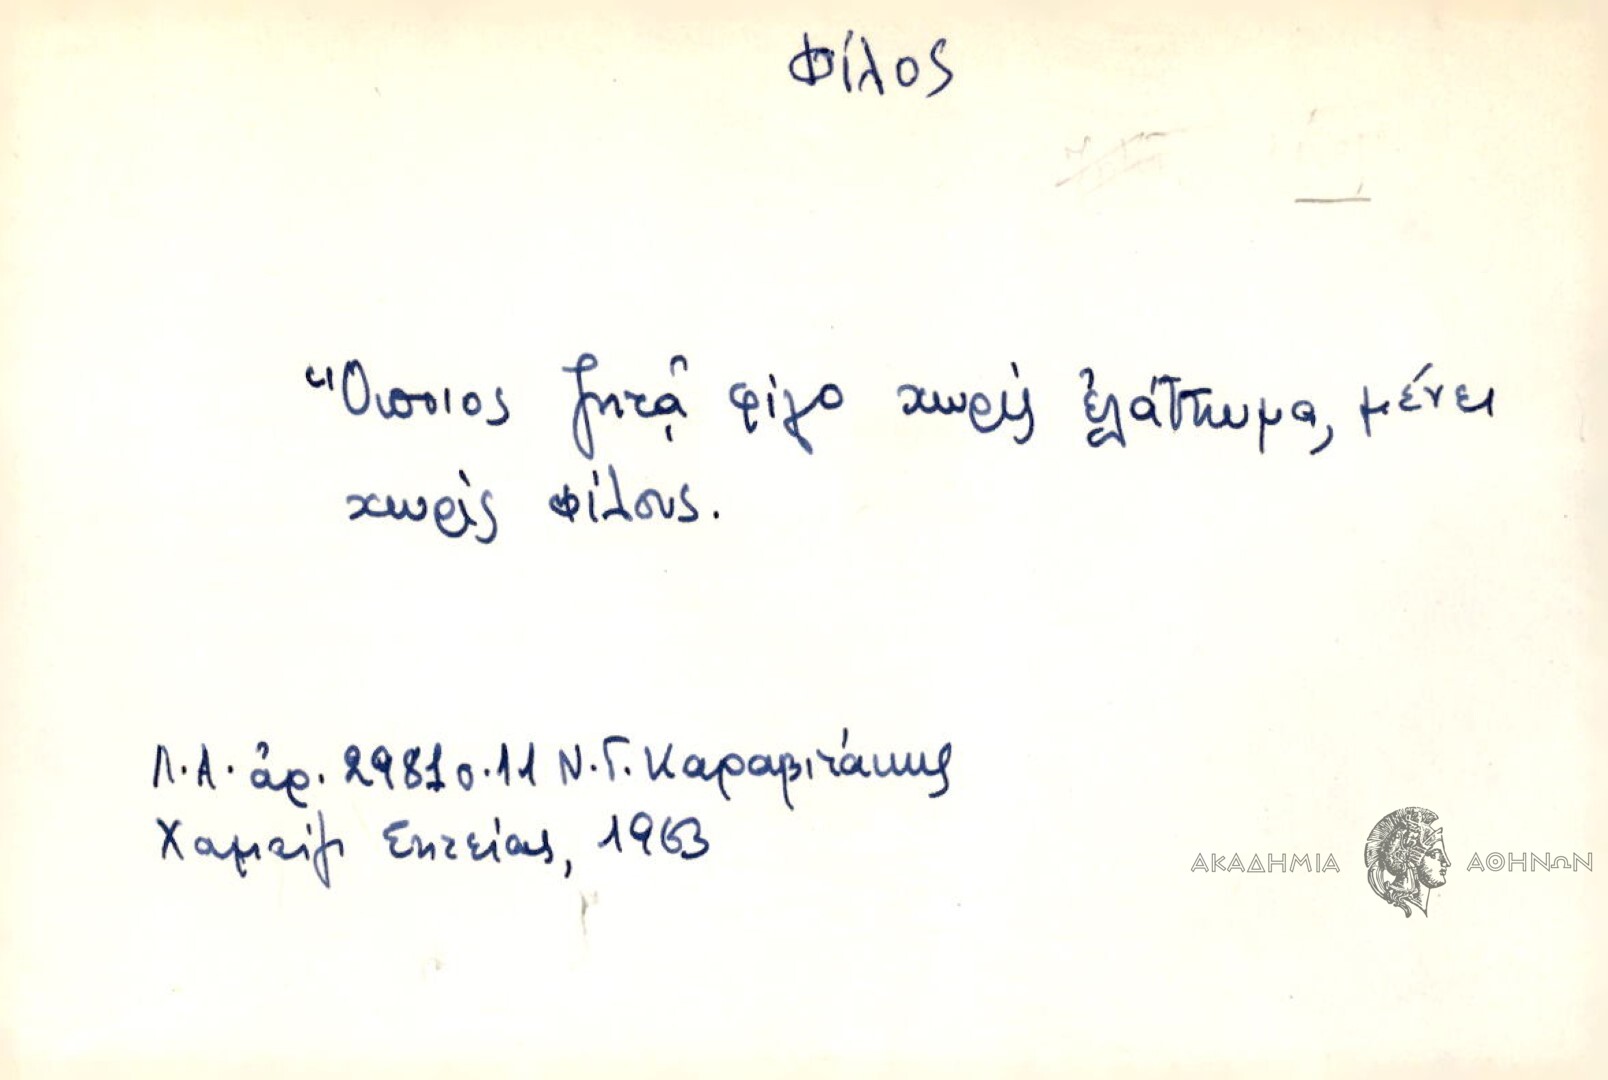 Φίλος
"Οποιος ζητᾷ φίλο χωρὶς ἐλάττωμα, μένει
χωρὶς φίλους.
Λ.Α. ἀρ. 2981 σ.11 Ν.Γ. Καραβιτάκης
Χαμαίζι Σητείας, 1963
ΑΚΑΔΗΜΙΑ ΑΘΗΝΩΝ